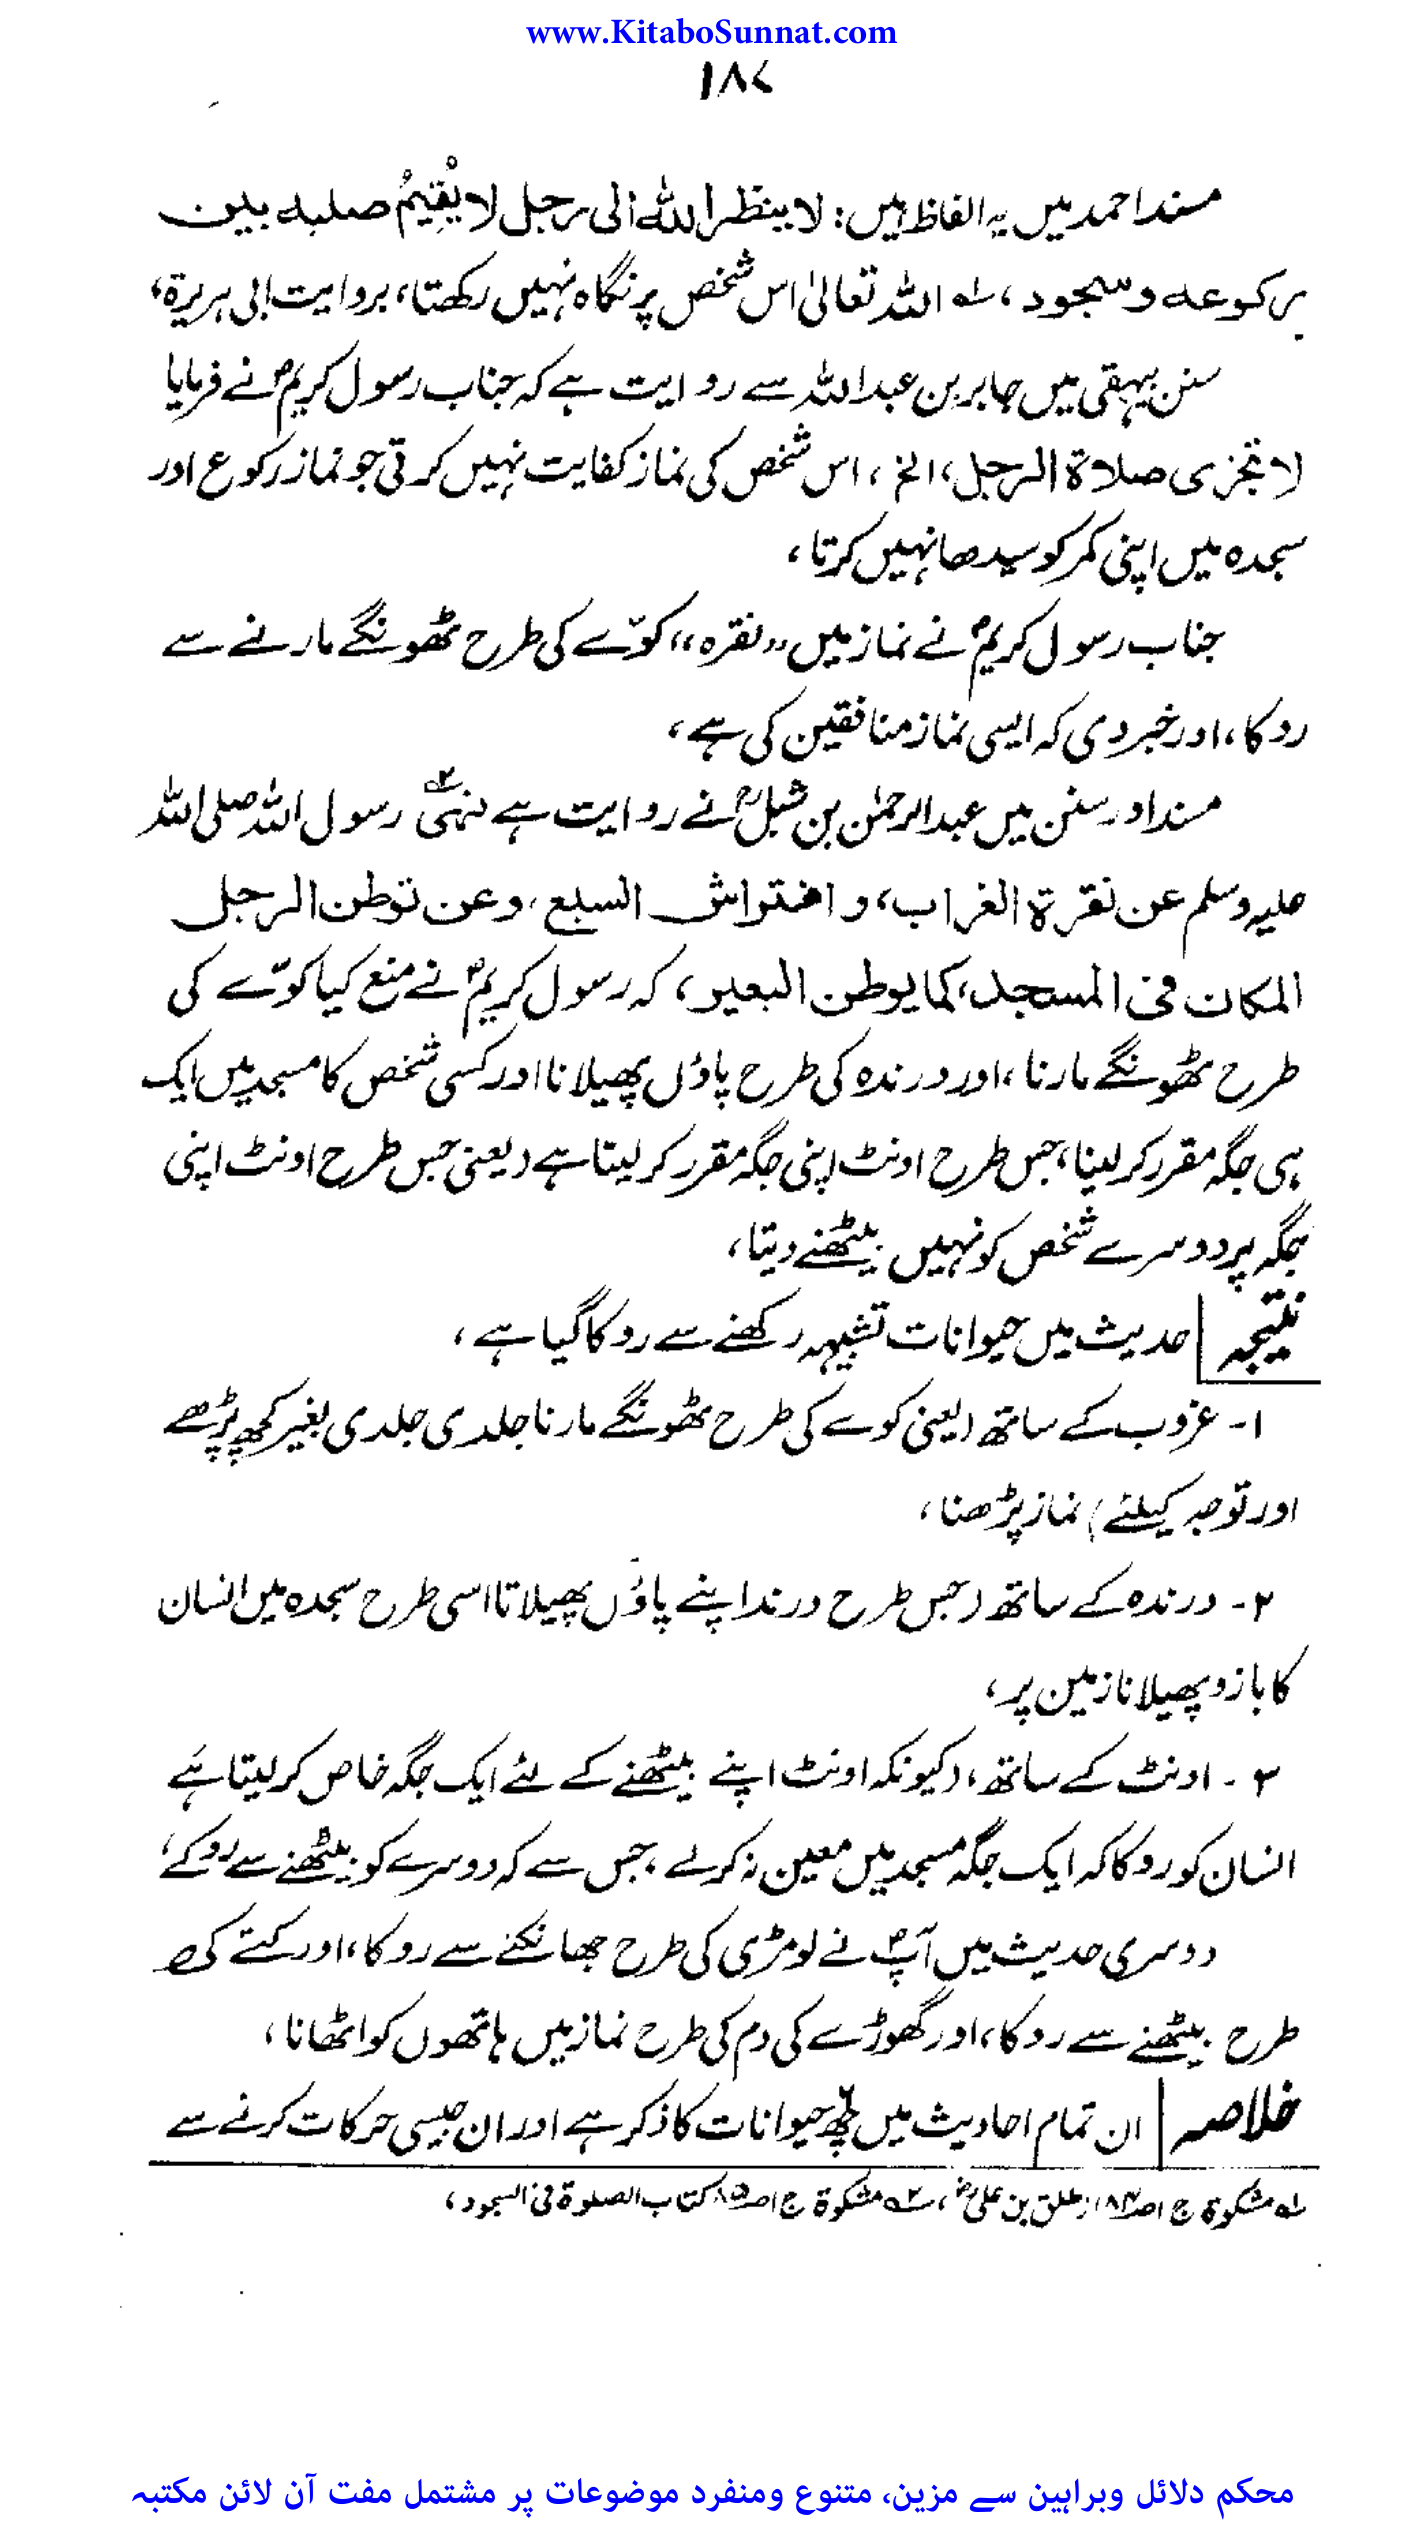 www.KitaboSunnat.com
۱۸۷
مسند احمد میں یہ الفاظ ہیں: لا ینظر اللہ الی رجل لا یُقِیمُ صلبہ بین
رکوعہ وسجود، لہ اللہ تعالیٰ اس شخص پر نگاہ نہیں رکھتا، بروایت ابی ہریرۃ،
سنن بیہقی میں جابر بن عبداللہ سے روایت ہے کہ جناب رسول کریمؐ نے فرمایا
لا تجزی صلاۃ الرجل، الخ، اس شخص کی نماز کفایت نہیں کرتی جو نماز رکوع اور
سجدہ میں اپنی کمر کو سیدھا نہیں کرتا،
جناب رسول کریمؐ نے نماز میں ’’نقرہ‘‘ کوّے کی طرح ٹھونگے مارنے سے
روکا، اور خبر دی کہ ایسی نماز منافقین کی ہے،
مسند اور سنن میں عبدالرحمٰن بن شبلؓ نے روایت ہے نہیٰ ۲ہ رسول اللہ صلی اللہ
علیہ وسلم عن نقرۃ الغراب، و افتراش السبع، وعن توطن الرجل
المکان فی المسجد، کما یوطن البعیر، کہ رسول کریمؐ نے منع کیا کوّے کی
طرح ٹھونگے مارنا، اور درندہ کی طرح پاؤں پھیلانا اور کسی شخص کا مسجد میں ایک
ہی جگہ مقرر کر لینا، جس طرح اونٹ اپنی جگہ مقرر کر لیتا ہے (یعنی جس طرح اونٹ اپنی
جگہ پر دوسرے شخص کو نہیں بیٹھنے دیتا،
نتیجہ | حدیث میں حیوانات تشبیہہ رکھنے سے روکا گیا ہے،
۱- غروب کے ساتھ (یعنی کوے کی طرح ٹھونگے مارنا جلدی جلدی بغیر کچھ پڑھے
اور توجہ کیلئے) نماز پڑھنا،
۲- درندہ کے ساتھ (جس طرح درندا اپنے پاؤں پھیلاتا اسی طرح سجدہ میں انسان
کا بازو پھیلانا زمین پر،
۳- اونٹ کے ساتھ، (کیونکہ اونٹ اپنے بیٹھنے کے لئے ایک جگہ خاص کر لیتا ہے
انسان کو روکا کہ ایک جگہ مسجد میں معین نہ کرلے، جس سے کہ دوسرے کو بیٹھنے سے روکے،
دوسری حدیث میں آپؐ نے لومڑی کی طرح جھانکنے سے روکا، اور کتے کی
طرح بیٹھنے سے روکا، اور گھوڑے کی دم کی طرح نماز میں ہاتھوں کو اٹھانا،
خلاصہ | ان تمام احادیث میں چھ حیوانات کا ذکر ہے اور ان جیسی حرکات کرنے سے
لہ مشکوۃ ج ۱ صـ۸۳ از طلق بن علیؓ، ۲ہ مشکوۃ ج ۱ صـ۸۵ کتاب الصلوۃ فی السجود،
محکم دلائل وبراہین سے مزین، متنوع ومنفرد موضوعات پر مشتمل مفت آن لائن مکتبہ